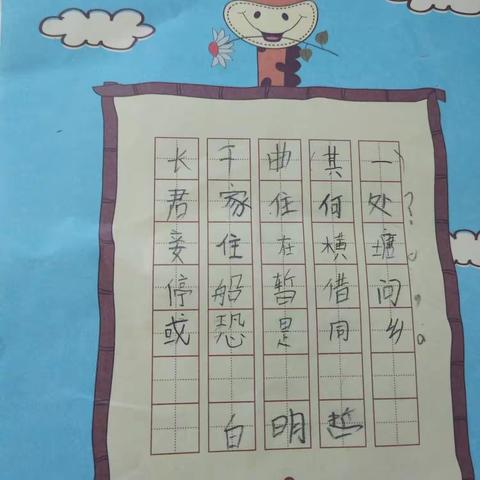 长干曲(其一)
君家住何处?
妾住在横塘。
停船暂借问,
或恐是同乡。
白明哲